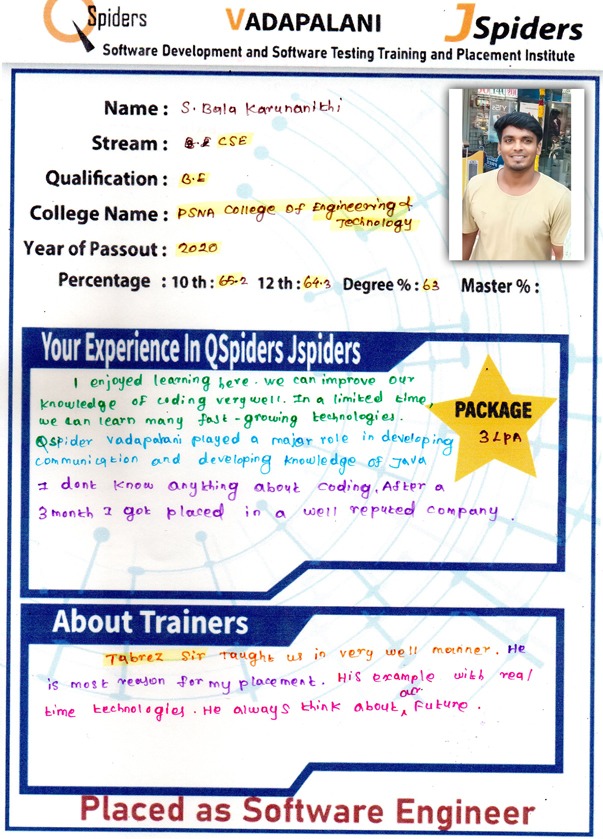 QSpiders VADAPALANI JSpiders
Software Development and Software Testing Training and Placement Institute
Name : S. Bala Karunanithi
Stream : B.E CSE
Qualification : B.E
College Name : PSNA College Of Engineering &
Technology
Year of Passout : 2020
Percentage : 10 th : 65.2 12 th : 64.3 Degree % : 63 Master % :
Your Experience In QSpiders Jspiders
I enjoyed learning here. we can improve our
knowledge of coding very well. In a limited time,
we can learn many fast-growing technologies.
Qspider vadapalani played a major role in developing
communication and developing knowledge of Java
I dont know anything about coding. After a
3 month I got placed in a well reputed company.
PACKAGE
3 LPA
About Trainers
Tabrez Sir Taught us in very well manner. He
is most reason for my placement. His example with real
time technologies. He always think about our Future.
Placed as Software Engineer